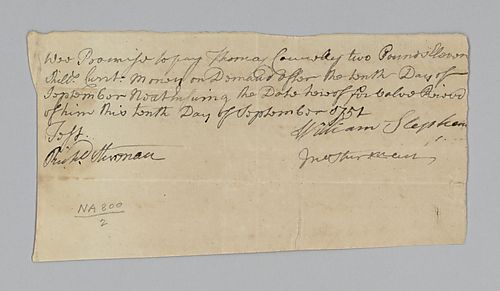 Wee Promise to pay Thomas Connerly two Pounds Eleven
Shills. Curt. Money on Demand After the tenth Day of
September Next insuing the Date hereof for value Riceved
of him this tenth Day of September 1751
Test.
William Stephens
Richd. Sherman
Jno Sherman
NA 800
2